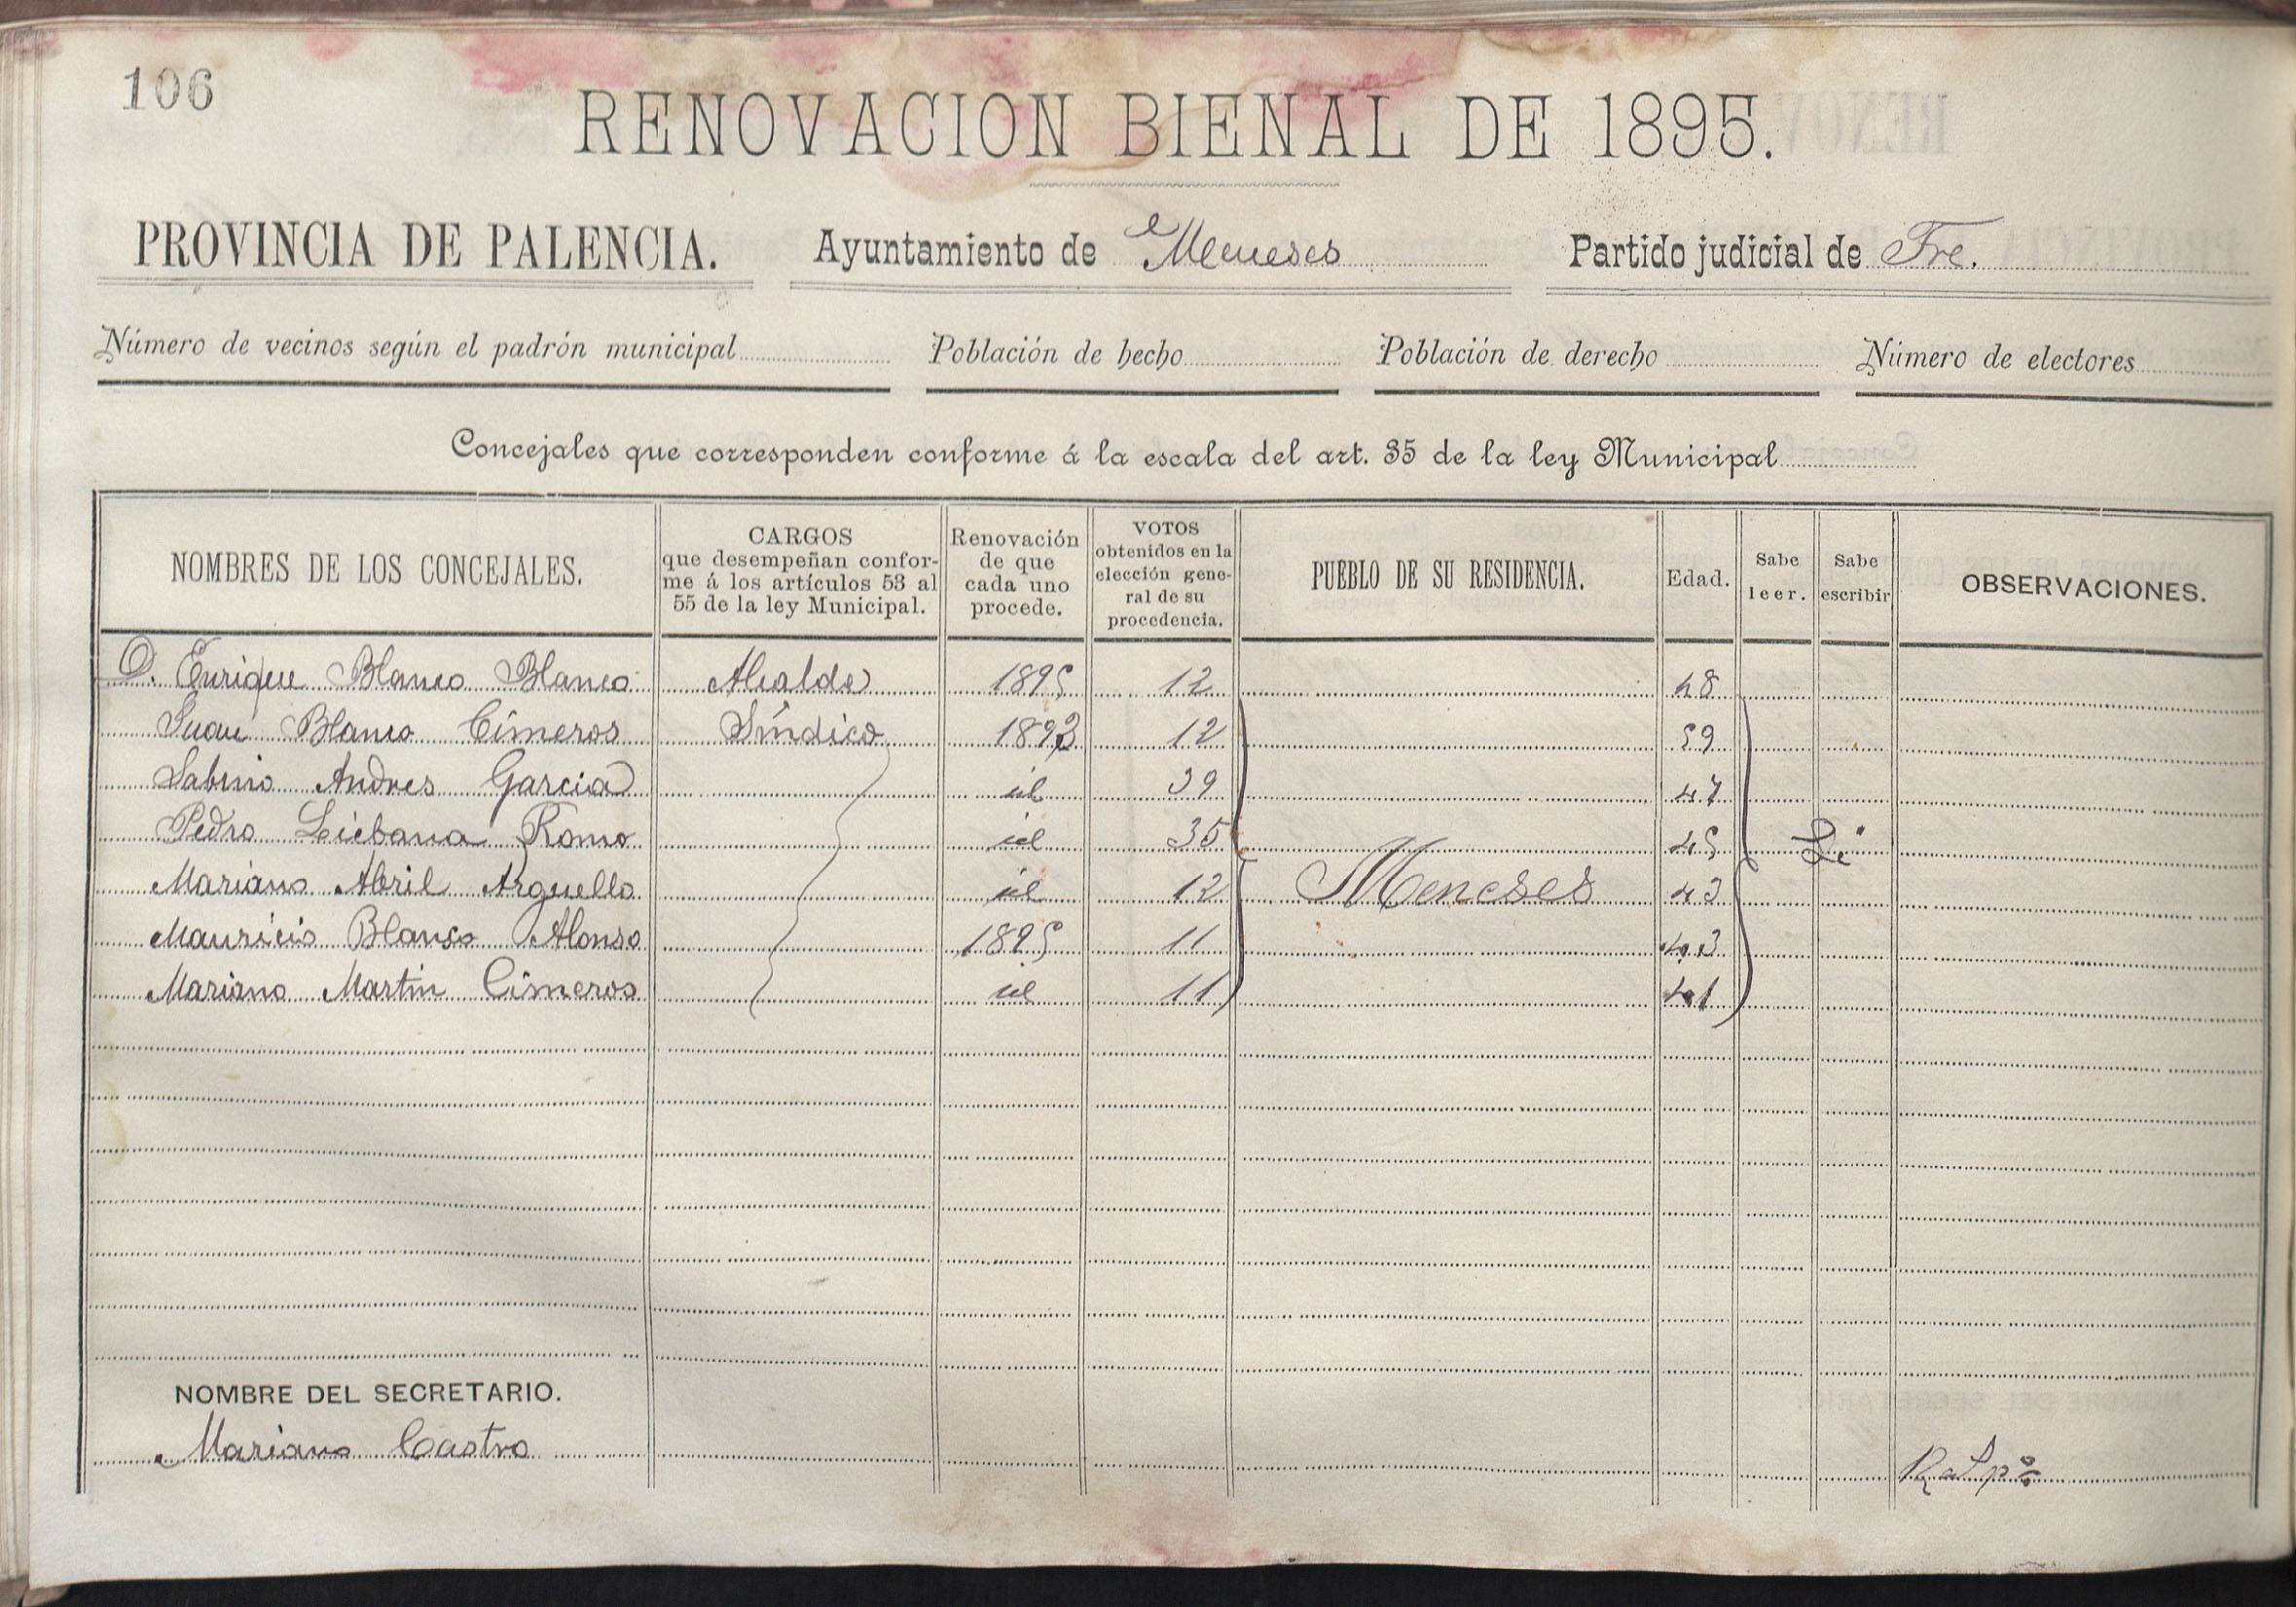 106
RENOVACION BIENAL DE 1895.
PROVINCIA DE PALENCIA. Ayuntamiento de Meneses Partido judicial de Fre.
Número de vecinos según el padrón municipal Población de hecho Población de derecho Número de electores
Concejales que corresponden conforme á la escala del art. 35 de la ley Municipal
NOMBRES DE LOS CONCEJALES.
CARGOS
que desempeñan confor-
me á los artículos 53 al
55 de la ley Municipal.
Renovación
de que
cada uno
procede.
VOTOS
obtenidos en la
elección gene-
ral de su
procedencia.
PUEBLO DE SU RESIDENCIA.
Edad.
Sabe
leer.
Sabe
escribir
OBSERVACIONES.
D. Enrique Blanco Blanco Alcalde 1895 12 48
Juan Blanco Cisneros Síndico 1893 12 59
Sabino Andres Garcia id 39 47
Pedro Liebana Romo id 35 45 Si
Mariano Abril Arguello id 12 Meneses 43
Mauricio Blanco Alonso 1895 11 43
Mariano Martin Cisneros id 11 41
NOMBRE DEL SECRETARIO.
Mariano Castro